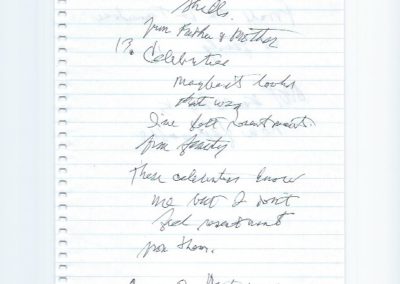 Skills.
from Father & Mother
17. Celebrities
Maybe it looks
that way
I've felt resentment
from family.
These celebrities know
me but I don't
feel resentment
from them.